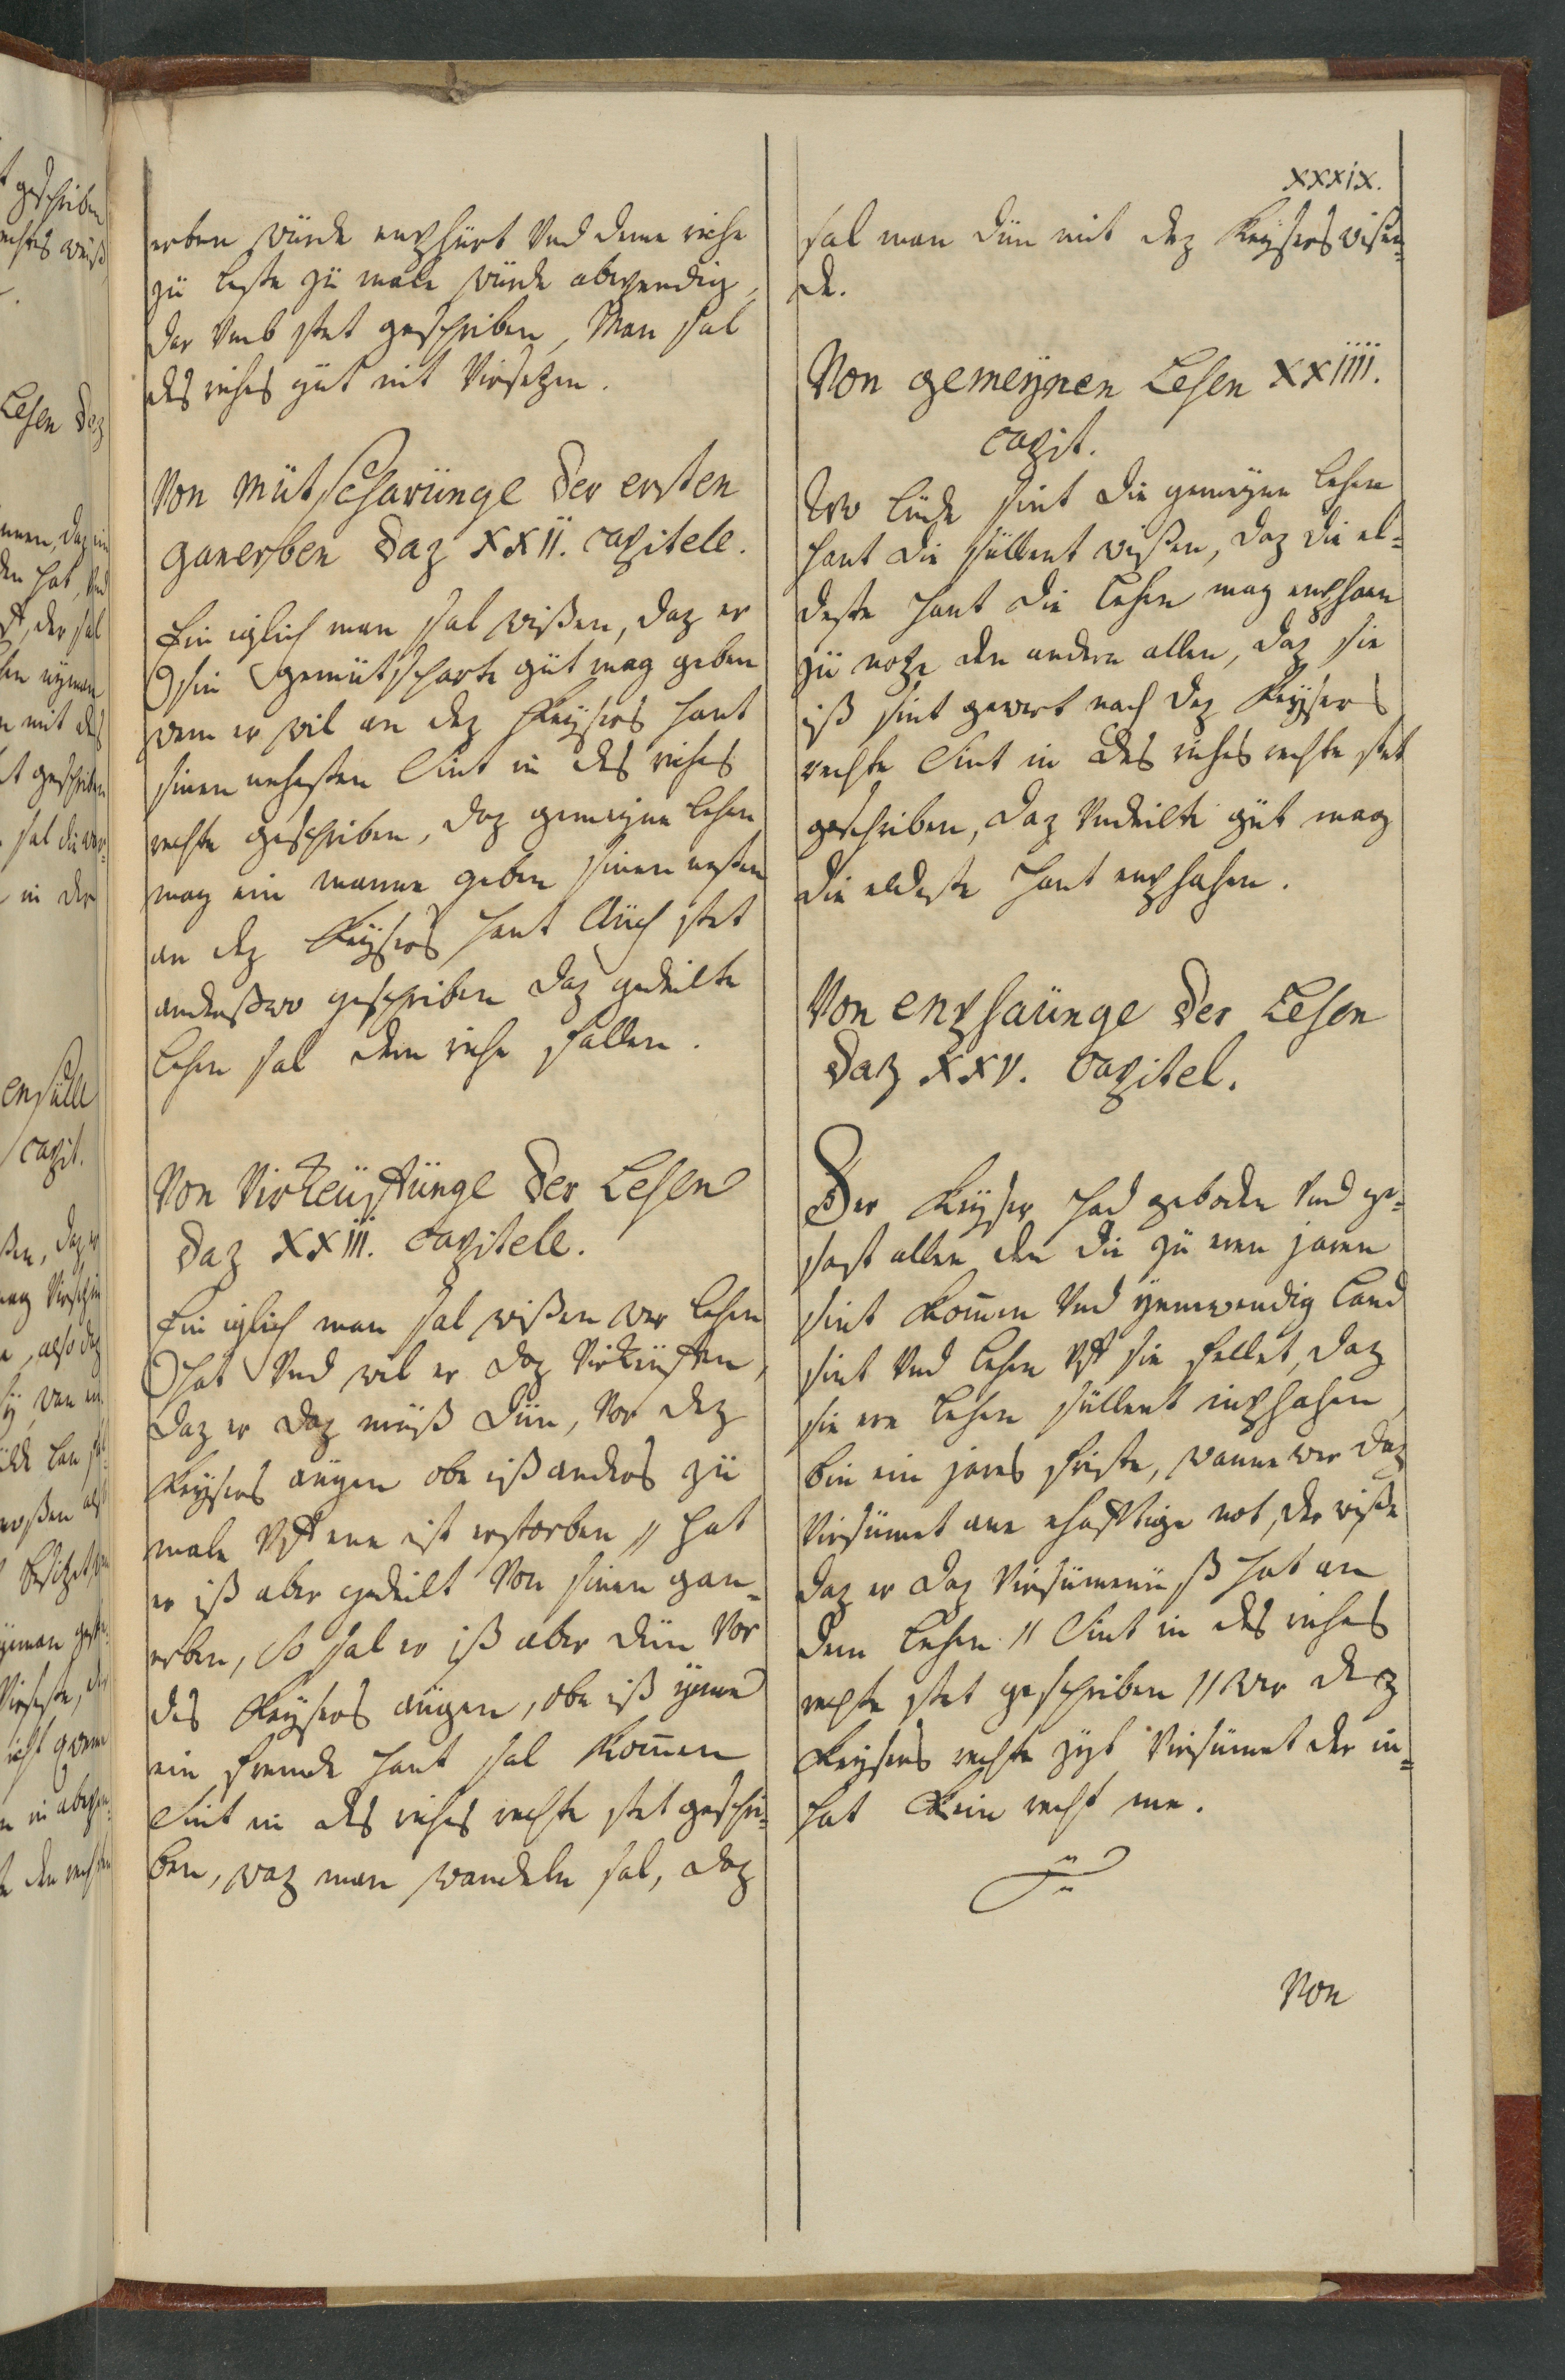 xxxix.
erben würde enphürt Vnd deme riche
zü leste zü male würde abwendig,
der Vmb stet geschriben, Man sal
des riches güt nit Virsetzen.
Von müt scharünge der ersten
ganerben daz XXII. capitele.
Ein iglich man sal wißen, daz er
sin gemütscharte güt mag geben
wem er wil an dez Keysers hant
sinen nehesten Sint in des riches
rechte geschriben, daz gemeyne lehen
mag ein manne geben sinen nesten
an dez Keysers hant Auch stet
anderßwo geschriben daz gedeilte
lehen sal dem riche fallen.
Von Virkeüftünge der Lehen
daz XXIII. capitele.
Ein iglich man sal wißen wer lehen
hat Vnd wil er daz Virkeüften,
daz er daz müß dün, Vor dez
Keysers aügen obe iß anders zü
male Vff ene ist erstorben // hat
er iß aber gedeilt Von sinen gan=
erben, So sal er iß aber dün Vor
des Keysers aügen, obe iß ymme
ein fremde hant sal komen
Sint in des riches rechte stet geschri=
ben, waz man wandeln sal, daz
sal man dün mit dez Keysers wißen=
de.
Von gemeynen Lehen XXIIII.
capit.
Wo lüde sint die gemeyne lehen
hant die süllent wißen, daz die el=
deste hant die lehen mag enphaen
zü notze den andern allen, daz sie
iß sint gewert nach dez Keysers
rechte Sint in des riches rechte stet
geschriben, daz Vndeilte güt mag
die eldeste hant enphahen.
Von enphaünge der Lehen
daz XXV. capitel.
Der Keyser had geboden Vnd ge=
sast allen den die zü eren jaren
sint komen Vnd ynnwendig Land
sint Vnd lehen Vff sie fellet, daz
sie ere lehen süllent inphahen
bin ein jares friste, wanne wer daz
Virsümet ane ehafftige not, der wiße
daz er daz Virsümenüß hat an
dem lehen // Sint in des riches
rechte stet geschriben // wer dez
Keysers rechte zyt Virsümet der in=
hat kein recht me.
Von